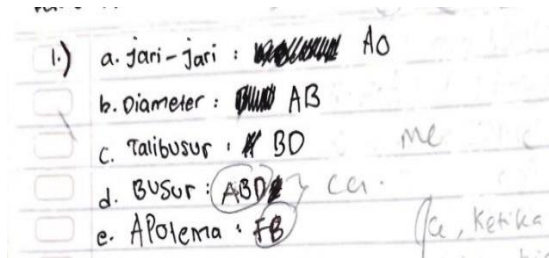 1.) a. Jari-jari : AO
b. Diameter : AB
c. Talibusur : BD me
d. Busur : ABD
e. APotema : FB , Ketika